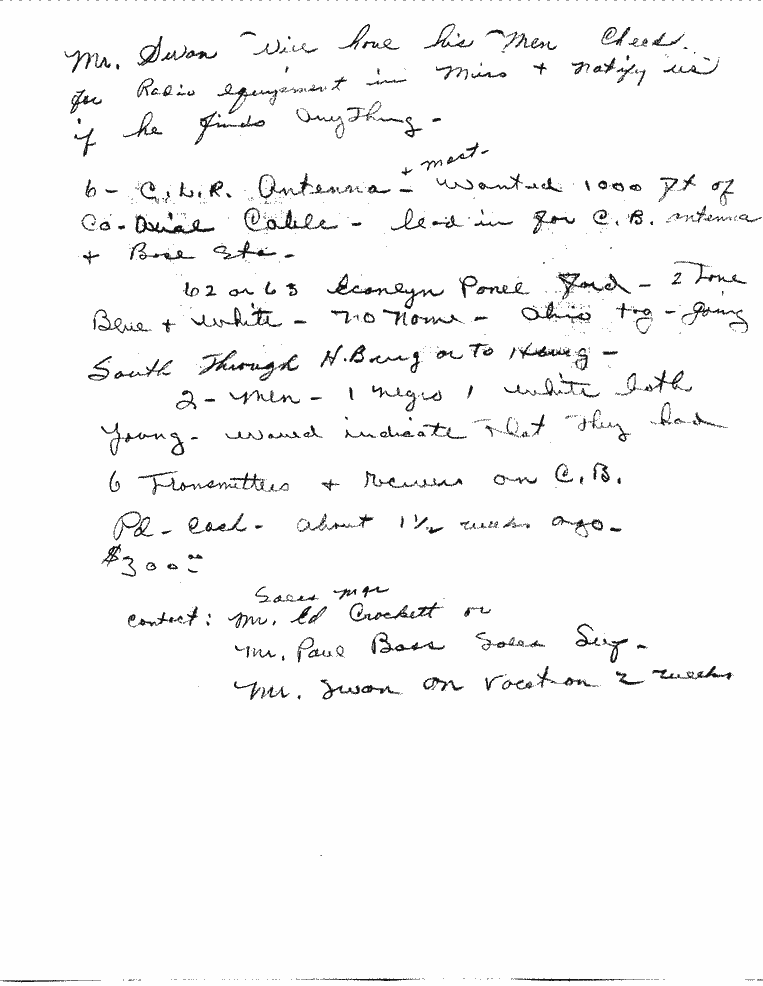 Mr. Swan will have his men check
for Radio equipment in Miss + notify us
if he finds anything -
+ mast -
6 - C.L.R. Antenna - wanted 1000 ft of
Co-Axial Cable - lead in for C.B. antenna
+ Base Sta. -
62 or 63 Econolyn Panel Ford - 2 Tone
Blue + white - no name - Ohio tag - going
South Through H.Burg or to H.burg -
2 - men - 1 negro 1 white both
young - would indicate that they had
6 Transmitters + receivers on C.B.
Pd - Cash - about 1 1/2 weeks ago -
$300.00
Sales mgr
contact: Mr. Ed Crockett or
Mr. Paul Bass Sales Sup -
Mr. Swan on vacation 2 weeks